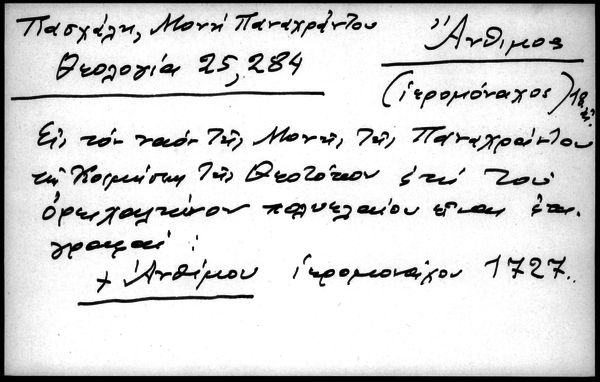 Πασχάλη, Μονή Παναχράντου
Θεολογία 25, 284
Ἄνθιμος
(ἱερομόναχος) 18
Εἰς τόν ναόν τῆς Μονῆς τῆς Παναχράντου
τῆς Κοιμήσεως τῆς Θεοτόκου ἐπί τοῦ
ὀρειχαλκίνου πολυελαίου εἶναι ἐπι-
γραφαί :
+ Ἀνθίμου ἱερομονάχου 1727..